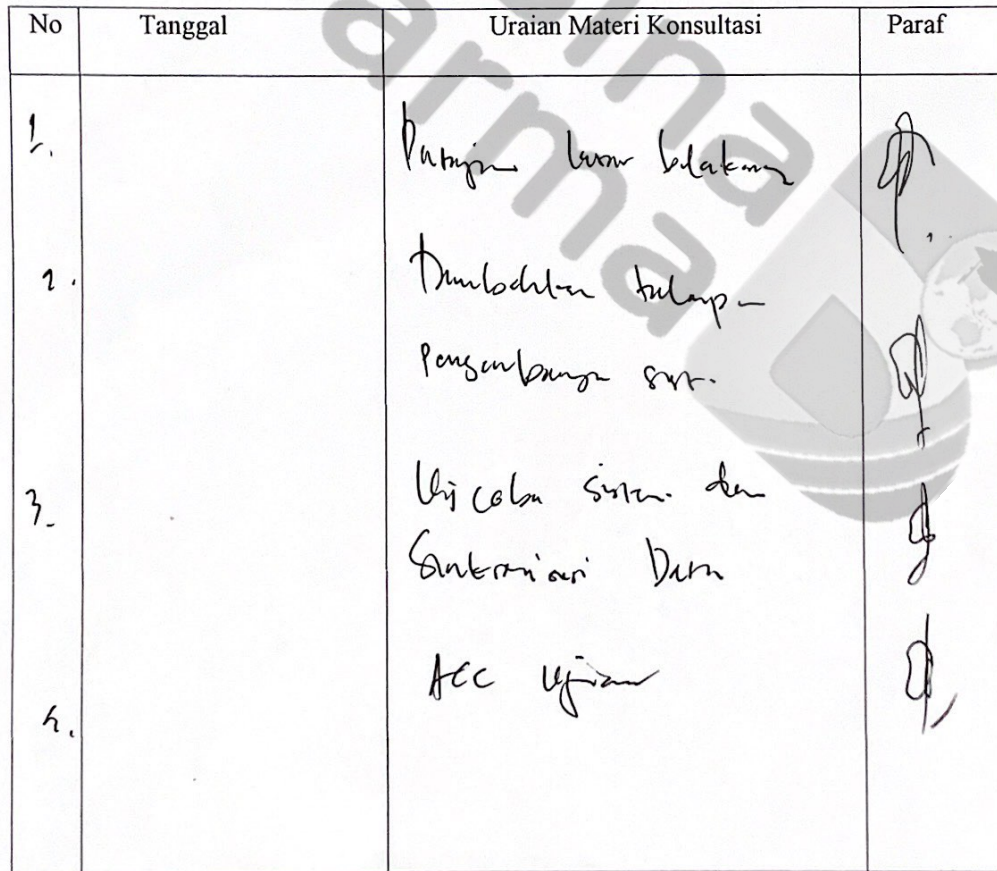 No Tanggal Uraian Materi Konsultasi Paraf
1. latar belakang
2. Tambahkan tahapan
Pengembangan
3. Uji coba sistem dan
Sinkronisasi Data
4. ACC Ujian